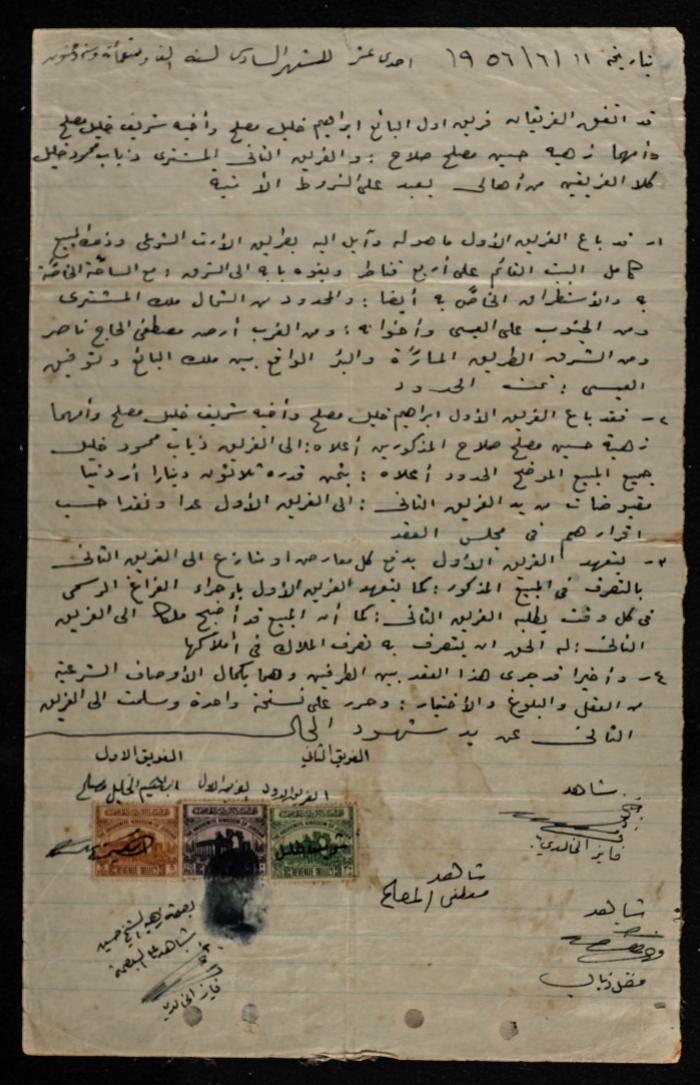 بتاريخ ١١ /٦ /١٩٥٦ احدى عشر الشهر السادس لسنة الف وتسعمائة وستة وخمسون
قد اتفق الفريقان فريق اول البائع ابراهيم خليل مصلح وأخيه شريف خليل مصلح
وأمهما زهيه حسين مصلح صلاح : والفريق الثاني المشتري ذياب محمود خليل
كلا الفريقين من أهالي يعبد على الشروط الأتية
١- قد باع الفريق الأول ما هو له وآيل اليه بطريق الأرث الشرعي وذلك المبيع
كامل البيت القائم على أربع قناطر ويفوه بابه الى الشرق : مع الساحة الخاصة
به والأستطراق الخاص به أيضا : والمحدود من الشمال ملك المشتري
ومن الجنوب على العيسى وأخوانه : ومن الغرب أرض مصطفى الحاج ناصر
ومن الشرق الطريق المارّة والبئر الواقع بين ملك البائع وتوفيق
العيسى : تمت الحدود
٢- فقد باع الفريق الأول ابراهيم خليل مصلح وأخيه شريف خليل مصلح وأمهما
زهية حسين مصلح صلاح المذكورين أعلاه : الى الفريق ذياب محمود خليل
جميع المبيع الموضح الحدود أعلاه : بثمن قدره ثلاثون دينارا أردنيا
مقبوضات من يد الفريق الثاني : الى الفريق الأول عدا ونقدا حسب
اقرارهم في مجلس العقد
٣- يتعهد الفريق الأول بدفع كل معارض او منازع الى الفريق الثاني
بالتصرف في المبيع المذكور : كما يتعهد الفريق الأول بإجراء الفراغ الرسمي
في كل وقت يطلبه الفريق الثاني : كما أن المبيع قد أصبح ملكا الى الفريق
الثاني : له الحق ان يتصرف به تصرف الملاك في أملاكها
٤- وأخيرا قد جرى هذا العقد بين الطرفين وهما بكمال الأوصاف الشرعية
من العقل والبلوغ والأختيار : وحرر على نسخة واحدة وسلمت الى الفريق
الثاني عن يد شهود الحال
الفريق الثاني
الفريق الاول
الفريق الاول الفريق الاول ابراهيم الخليل مصلح
شاهد
فايز الخالدي
REVENUE
REVENUE
REVENUE
شريف خليل
شاهد
مصطفى المصلح
شاهد
فضل ذياب
بصمة زهيه الشيخ حسين
شاهد على البصمة
فايز الخالدي